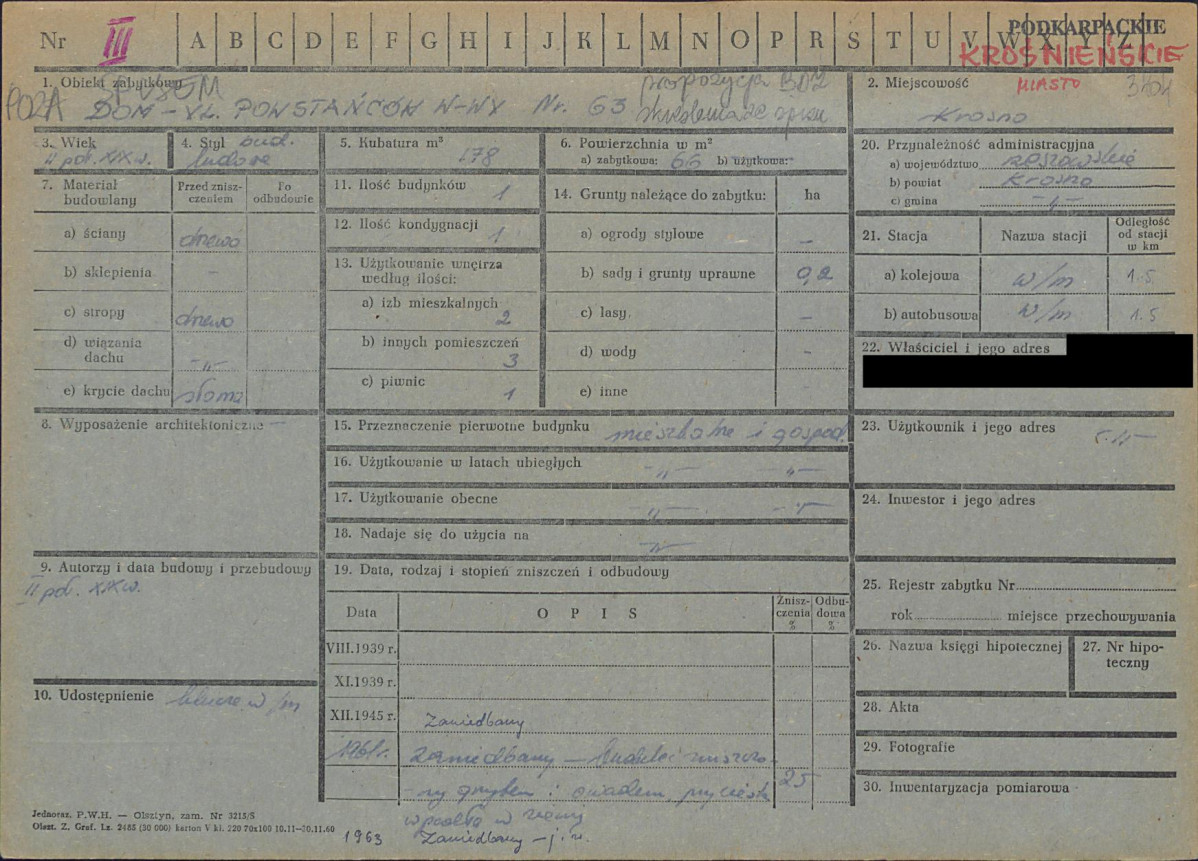 PODKARPACKIE
Nr III A B C D E F G H I J K L M N O P R S T U V W X Y Z
KROŚNIEŃSKIE
MIASTO
1. Obiekt zabytkowy
POZA SPISEM
propozycja
DOM - UL. POWSTAŃCÓW W-WY Nr. 63
skreślenia ze spisu
2. Miejscowość
Krosno
3. Wiek
II poł. XIX w.
4. Styl bud.
ludowe
5. Kubatura m³
178
6. Powierzchnia w m²
a) zabytkowa: 66 b) użytkowa: -
7. Materiał budowlany
Przed zniszczeniem
Po odbudowie
a) ściany drewo
b) sklepienia -
c) stropy drewo
d) wiązania dachu -„-
e) krycie dachu słoma
8. Wyposażenie architektoniczne -
9. Autorzy i data budowy i przebudowy
II poł. XIX w.
10. Udostępnienie klucze w/m
11. Ilość budynków 1
12. Ilość kondygnacji 1
13. Użytkowanie wnętrza według ilości:
a) izb mieszkalnych 2
b) innych pomieszczeń 3
c) piwnic 1
14. Grunty należące do zabytku: ha
a) ogrody stylowe -
b) sady i grunty uprawne 0,2
c) lasy -
d) wody -
e) inne -
15. Przeznaczenie pierwotne budynku mieszkalne i gospod.
16. Użytkowanie w latach ubiegłych -„- -„-
17. Użytkowanie obecne -„- -„-
18. Nadaje się do użycia na -„-
19. Data, rodzaj i stopień zniszczeń i odbudowy
Data OPIS Zniszczenia % Odbudowa %
VIII.1939 r.
XI.1939 r.
XII.1945 r. Zaniedbany
1961 r. zaniedbany -
ny grzybem i 25
wpadła w ziemię
1963 Zaniedbany - j.w.
20. Przynależność administracyjna
a) województwo rzeszowskie
b) powiat Krosno
c) gmina -„-
21. Stacja Nazwa stacji Odległość od stacji w km
a) kolejowa w/m 1.5
b) autobusowa w/m 1.5
22. Właściciel i jego adres
23. Użytkownik i jego adres
24. Inwestor i jego adres
25. Rejestr zabytku Nr
rok miejsce przechowywania
26. Nazwa księgi hipotecznej
27. Nr hipoteczny
28. Akta
29. Fotografie
30. Inwentaryzacja pomiarowa
Jednoraz. P.W.H. — Olsztyn, zam. Nr 3215/S
Olszt. Z. Graf. Lz. 2485 (30 000) karton V kl. 220 70x100 10.11—30.11.60